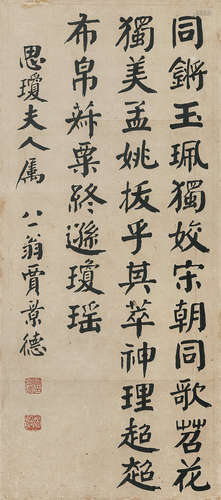 同鏘玉珮獨姣宋朝同歌苕花
獨美孟姚拔乎其萃神理超超
布帛菽粟終遜瓊瑤
思瓊夫人屬
八一翁賈景德